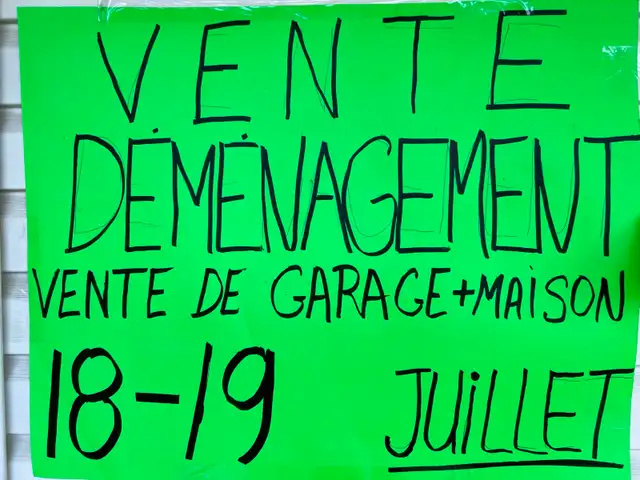 VENTE
DÉMÉNAGEMENT
VENTE DE GARAGE+MAiSON
18-19 JUiLLET